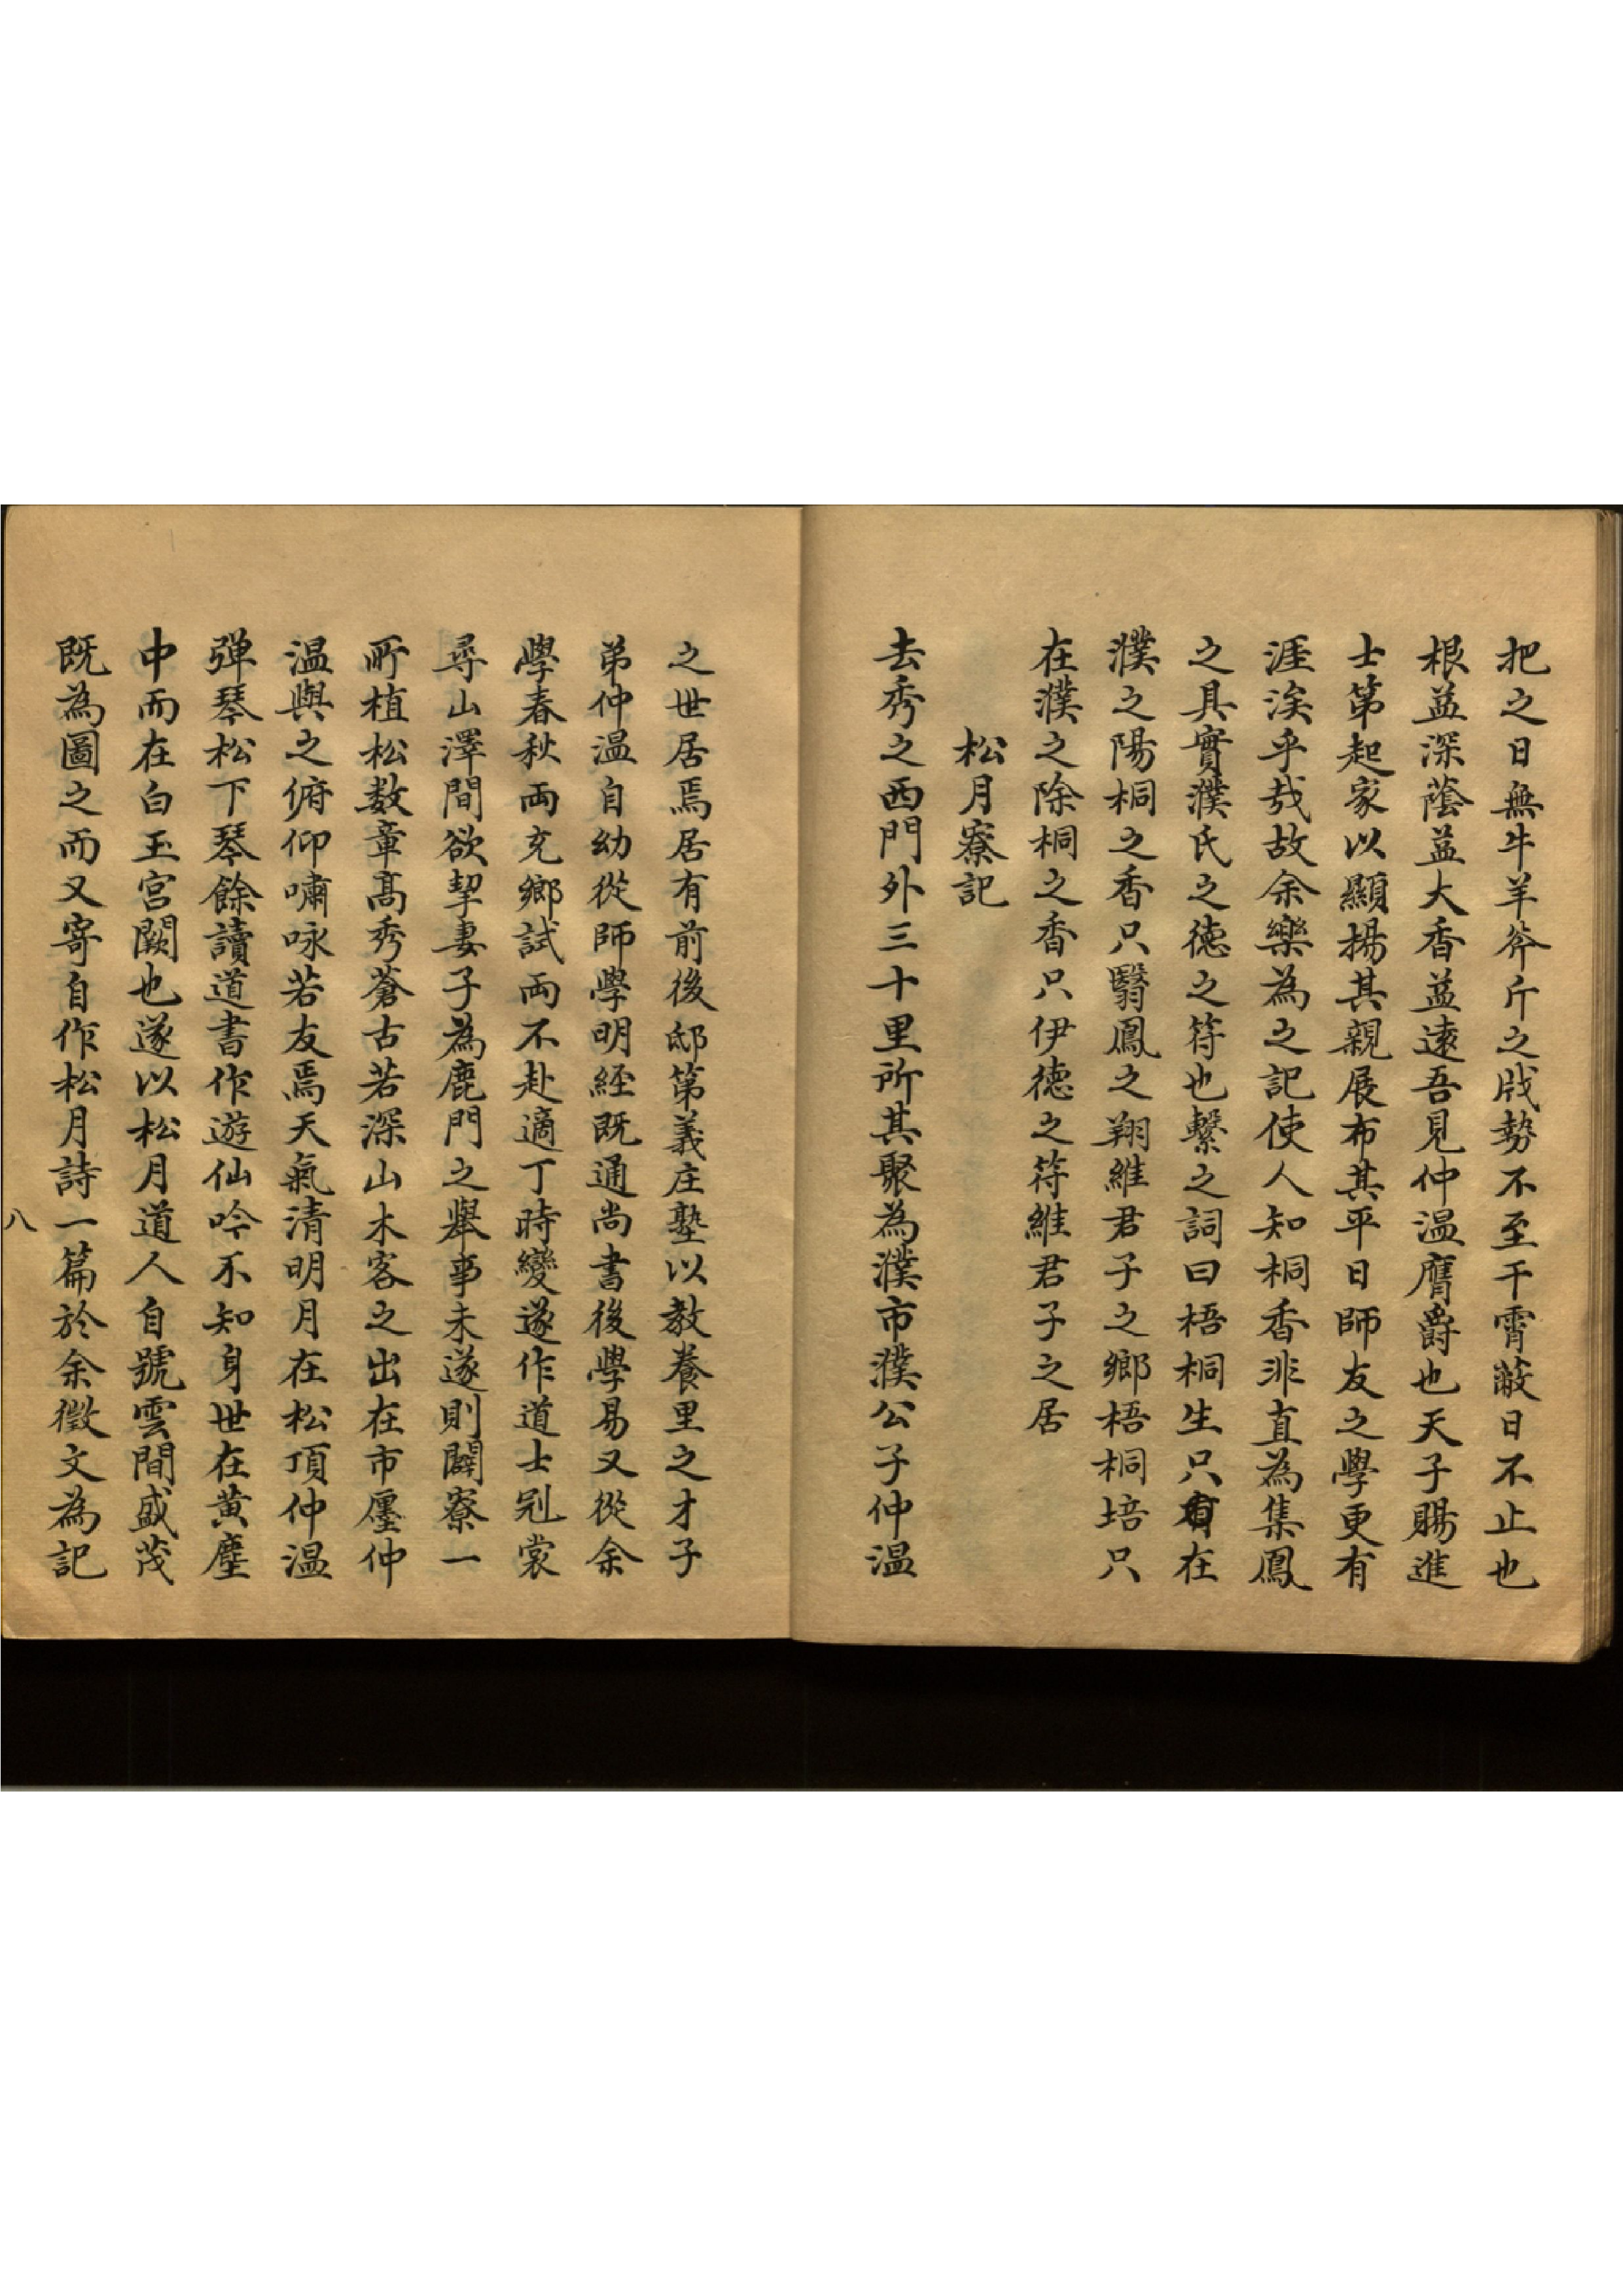 把之日無牛羊斧斤之戕勢不至干霄蔽日不止也
根益深蔭益大香益遠吾見仲温膺爵也天子賜進
士第起家以顯揚其親展布其平日師友之學更有
涯涘乎哉故余樂為之記使人知桐香非直為集鳳
之具實濮氏之德之符也繫之詞曰梧桐生只在
濮之陽桐之香只翳鳳之翔維君子之鄉梧桐培只
在濮之除桐之香只伊德之符維君子之居
松月寮記
去秀之西門外三十里所其聚為濮市濮公子仲温
之世居焉居有前後邸第義庄塾以教養里之才子
弟仲温自幼從師學明經既通尚書後學易又從余
學春秋両充鄉試両不赴適丁時變遂作道士冠裳
尋山澤間欲挈妻子為鹿門之舉事未遂則闢寮一
所植松数章高秀蒼古若深山木客之出在市廛仲
温與之俯仰嘯咏若友焉天氣清明月在松頂仲温
弹琴松下琴餘讀道書作遊仙吟不知身世在黄塵
中而在白玉宫闕也遂以松月道人自號雲間盛茂
既為圖之而又寄自作松月詩一篇於余徵文為記
八